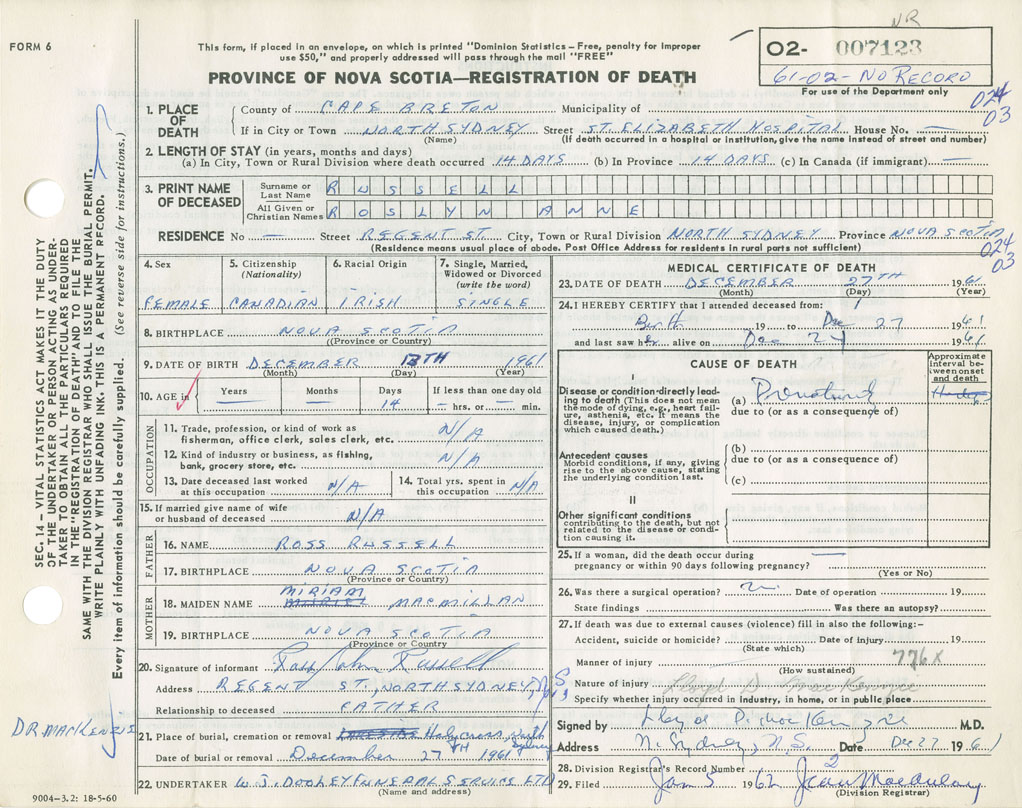 NR
FORM 6
This form, if placed in an envelope, on which is printed "Dominion Statistics – Free, penalty for improper
use $50," and properly addressed will pass through the mail "FREE"
O2- 007123
61-02-NO RECORD
For use of the Department only
PROVINCE OF NOVA SCOTIA—REGISTRATION OF DEATH
024
03
1. PLACE OF DEATH
County of CAPE BRETON Municipality of
If in City or Town NORTH SYDNEY Street ST. ELIZABETH HOSPITAL House No. —
(Name) (If death occurred in a hospital or institution, give the name instead of street and number)
2. LENGTH OF STAY (in years, months and days)
(a) In City, Town or Rural Division where death occurred 14 DAYS (b) In Province 14 DAYS (c) In Canada (if immigrant) —
3. PRINT NAME OF DECEASED
Surname or Last Name RUSSELL
All Given or Christian Names ROSLYN ANNE
RESIDENCE No — Street REGENT ST. City, Town or Rural Division NORTH SYDNEY Province NOVA SCOTIA
(Residence means usual place of abode. Post Office Address for residents in rural parts not sufficient)
024
03
SEC. 14 – VITAL STATISTICS ACT MAKES IT THE DUTY
OF THE UNDERTAKER OR PERSON ACTING AS UNDER-
TAKER TO OBTAIN ALL THE PARTICULARS REQUIRED
IN THE "REGISTRATION OF DEATH" AND TO FILE THE
SAME WITH THE DIVISION REGISTRAR WHO SHALL ISSUE THE BURIAL PERMIT.
WRITE PLAINLY WITH UNFADING INK. THIS IS A PERMANENT RECORD.
Every item of Information should be carefully supplied. (See reverse side for instructions.)
DR MACKENZIE
4. Sex
FEMALE
5. Citizenship
(Nationality)
CANADIAN
6. Racial Origin
IRISH
7. Single, Married,
Widowed or Divorced
(write the word)
SINGLE
8. BIRTHPLACE NOVA SCOTIA
((Province or Country)
9. DATE OF BIRTH DECEMBER 13TH 1961
(Month) (Day) (Year)
10. AGE in
Years Months Days If less than one day old
— — 14 — hrs. or — min.
OCCUPATION
11. Trade, profession, or kind of work as
fisherman, office clerk, sales clerk, etc. N/A
12. Kind of industry or business, as fishing,
bank, grocery store, etc. N/A
13. Date deceased last worked
at this occupation N/A
14. Total yrs. spent in
this occupation N/A
15. If married give name of wife
or husband of deceased N/A
FATHER
16. NAME ROSS RUSSELL
17. BIRTHPLACE NOVA SCOTIA
(Province or Country)
MOTHER
MIRIAM
18. MAIDEN NAME MURIEL MACMILLAN
19. BIRTHPLACE NOVA SCOTIA
(Province or Country)
20. Signature of informant Ross John Russell
Address REGENT ST., NORTH SYDNEY, N.S.
Relationship to deceased FATHER
21. Place of burial, cremation or removal LAKESIDE Holy Cross, North Sydney
Date of burial or removal December 27TH 1961
22. UNDERTAKER W. J. DOOLEY FUNERAL SERVICE LTD
(Name and address)
9004-3.2: 18-5-60
MEDICAL CERTIFICATE OF DEATH
23. DATE OF DEATH DECEMBER 27TH 1961
(Month) (Day) (Year)
24. I HEREBY CERTIFY that I attended deceased from:
Birth 19 to Dec 27 1961
and last saw her alive on Dec 27 1961
CAUSE OF DEATH
Approximate interval between onset and death
I
Disease or condition directly lead-
ing to death (This does not mean
the mode of dying, e.g., heart fail-
ure, asthenia, etc. It means the
disease, injury, or complication
which caused death.)
(a) Prematurity
due to (or as a consequence of)
Antecedent causes
Morbid conditions, if any, giving
rise to the above cause, stating
the underlying condition last.
(b)
due to (or as a consequence of)
(c)
II
Other significant conditions
contributing to the death, but not
related to the disease or condi-
tion causing it.
25. If a woman, did the death occur during
pregnancy or within 90 days following pregnancy? —
(Yes or No)
26. Was there a surgical operation? no Date of operation 19
State findings Was there an autopsy?
27. If death was due to external causes (violence) fill in also the following:–
Accident, suicide or homicide? Date of injury 19
(State which)
Manner of injury 776X
(How sustained)
Nature of injury Lloyd D. MacKenzie
Specify whether injury occurred in industry, in home, or in public place
Signed by Lloyd D. MacKenzie M.D.
Address N. Sydney, N.S. Date Dec 27 1961
28. Division Registrar's Record Number 2
29. Filed Jan 5 1962 Jean MacAulay
(Division Registrar)